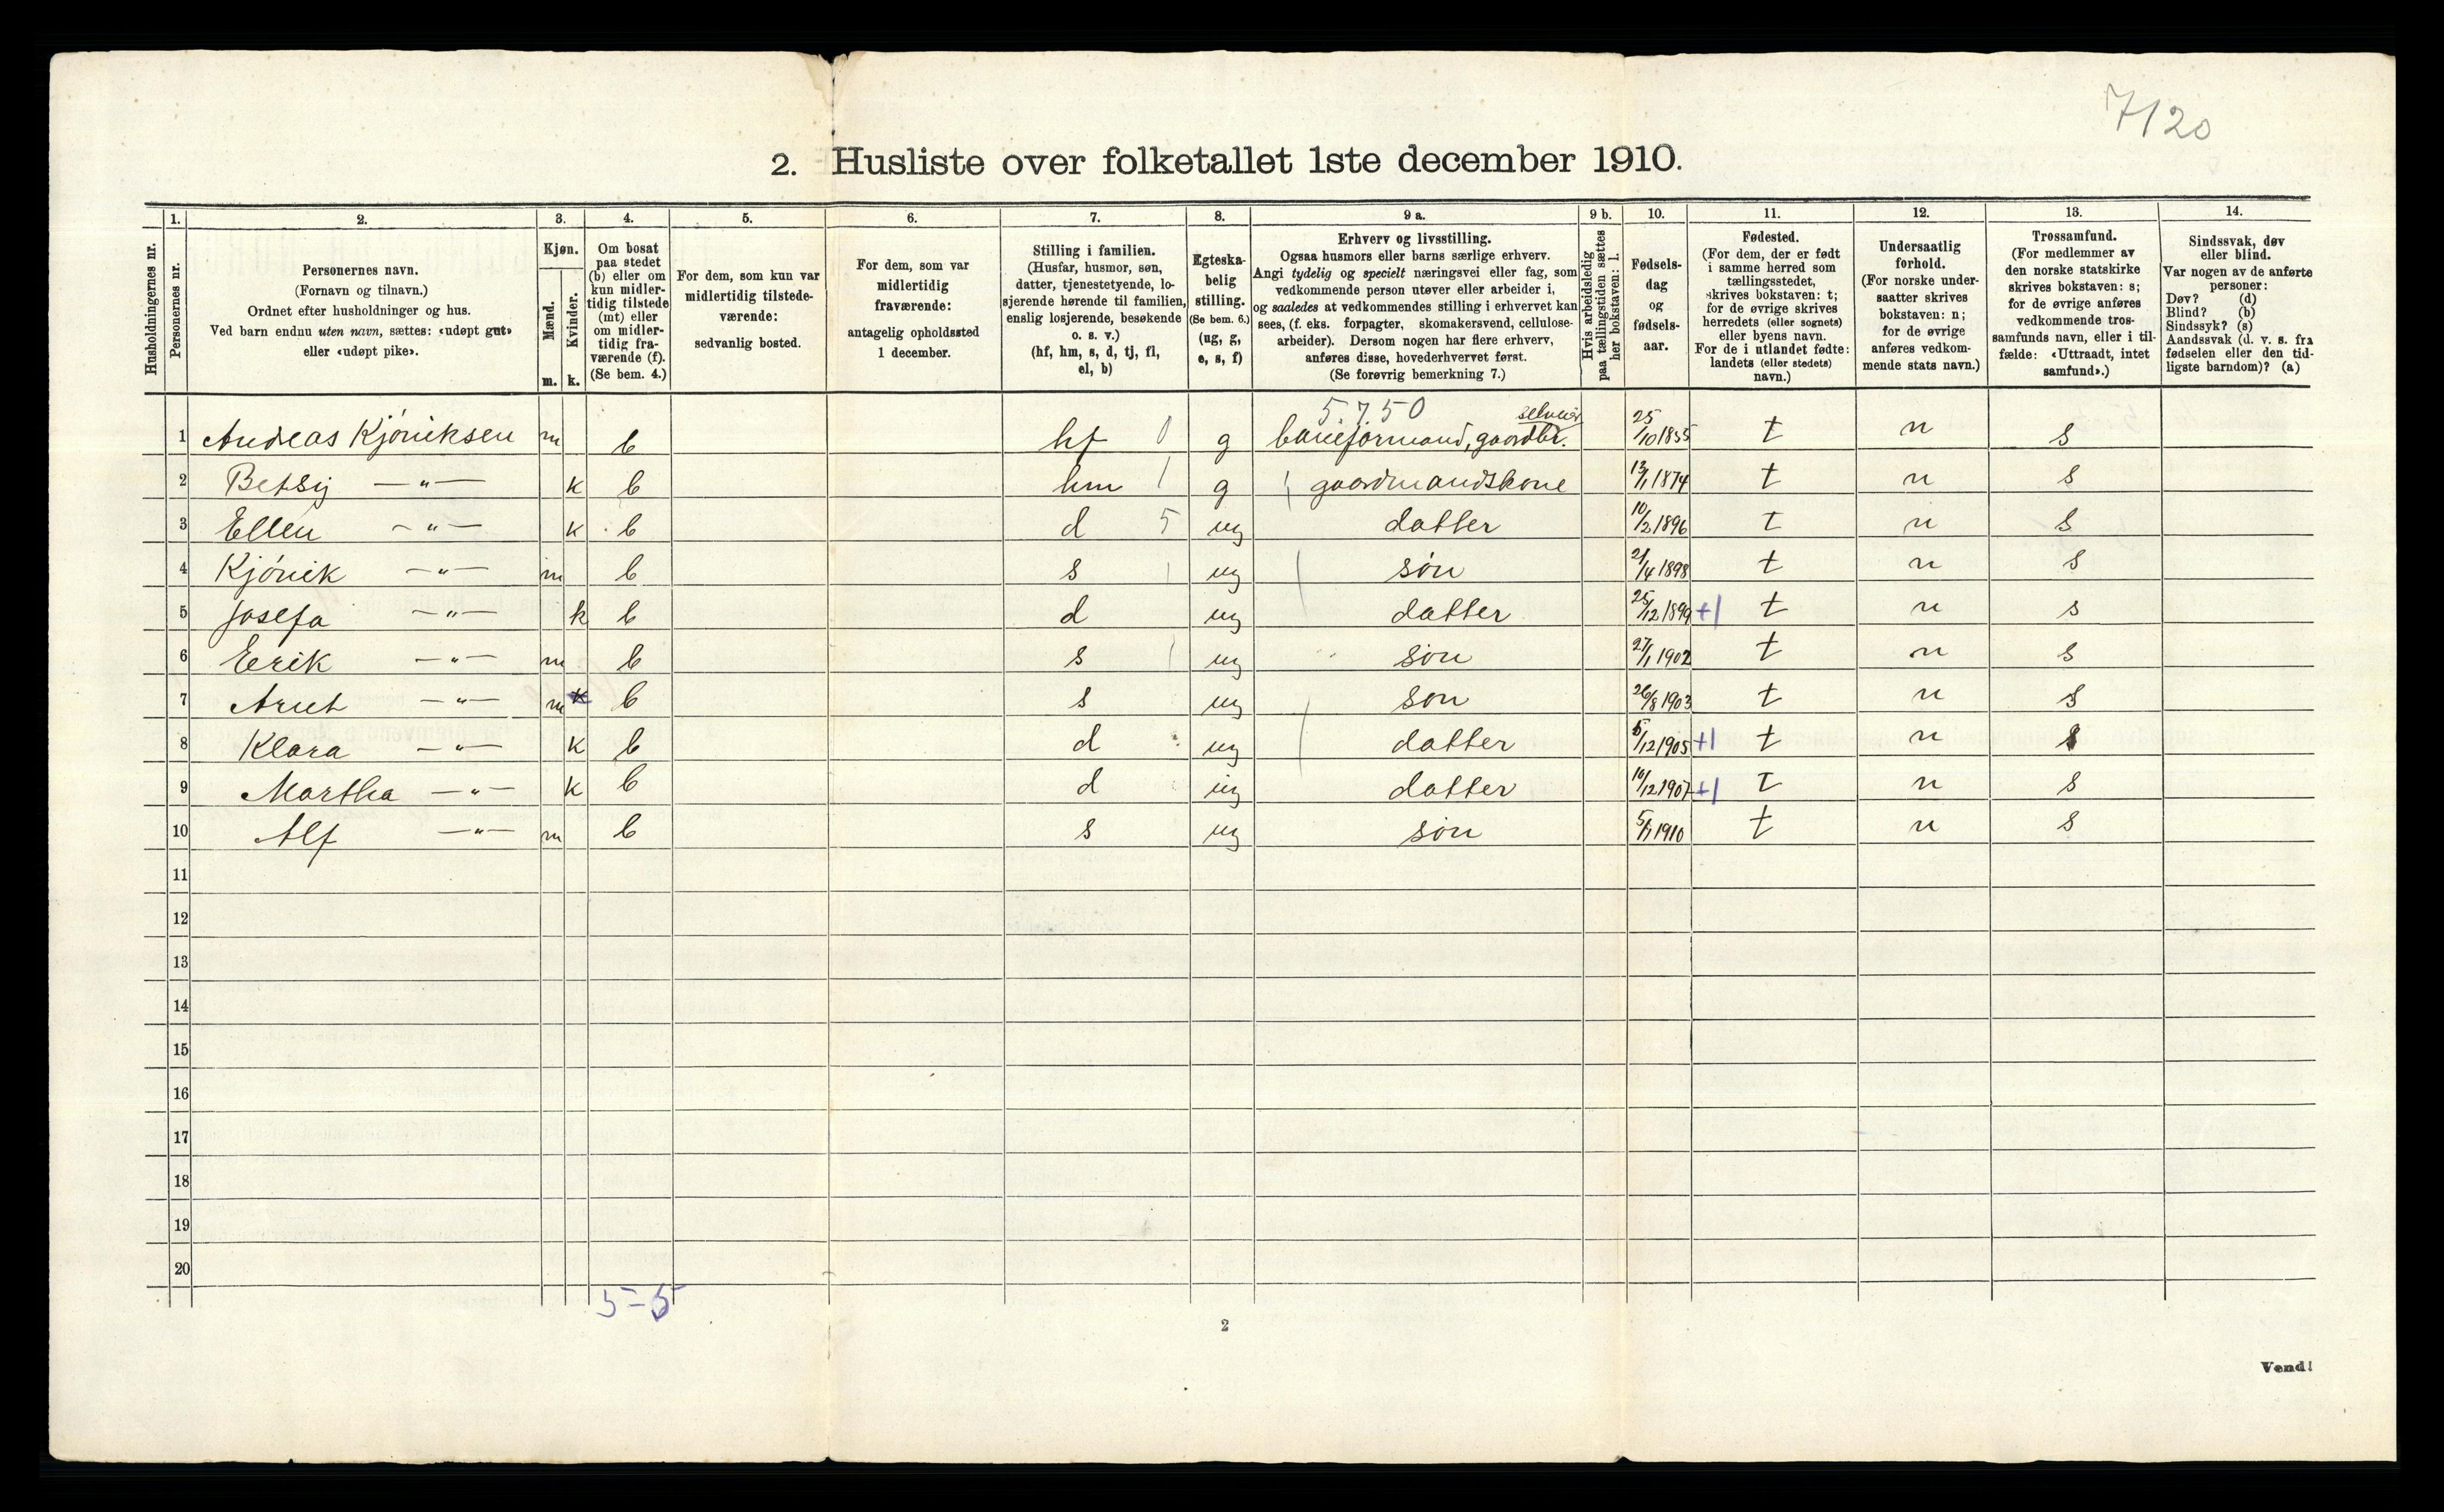 7/20
2. Husliste over folketallet 1ste december 1910.
Husholdningernes nr.
1.
Personernes nr.
2.
Personernes navn.
(Fornavn og tilnavn.)
Ordnet efter husholdninger og hus.
Ved barn endnu uten navn, sættes: «udøpt gut»
eller «udøpt pike».
3.
Kjøn.
Mænd.
m.
Kvinder.
k.
4.
Om bosat
paa stedet
(b) eller om
kun midler-
tidig tilstede
(mt) eller
om midler-
tidig fra-
værende (f).
(Se bem. 4.)
5.
For dem, som kun var
midlertidig tilstede-
værende:
sedvanlig bosted.
6.
For dem, som var
midlertidig
fraværende:
antagelig opholdssted
1 december.
7.
Stilling i familien.
(Husfar, husmor, søn,
datter, tjenestetyende, lo-
sjerende hørende til familien,
enslig losjerende, besøkende
o. s. v.)
(hf, hm, s, d, tj, fl,
el, b)
8.
Egteska-
belig
stilling.
(Se bem. 6.)
(ug, g,
e, s, f)
9 a.
Erhverv og livsstilling.
Ogsaa husmors eller barns særlige erhverv.
Angi tydelig og specielt næringsvei eller fag, som
vedkommende person utøver eller arbeider i,
og saaledes at vedkommendes stilling i erhvervet kan
sees, (f. eks. forpagter, skomakersvend, cellulose-
arbeider). Dersom nogen har flere erhverv,
anføres disse, hovederhvervet først.
(Se forøvrig bemerkning 7.)
9 b.
Hvis arbeidsledig
paa tællingstiden sættes
her bokstaven: l.
10.
Fødsels-
dag
og
fødsels-
aar.
11.
Fødested.
(For dem, der er født
i samme herred som
tællingsstedet,
skrives bokstaven: t;
for de øvrige skrives
herredets (eller sognets)
eller byens navn.
For de i utlandet fødte:
landets (eller stedets)
navn.)
12.
Undersaatlig
forhold.
(For norske under-
saatter skrives
bokstaven: n;
for de øvrige
anføres vedkom-
mende stats navn.)
13.
Trossamfund.
(For medlemmer av
den norske statskirke
skrives bokstaven: s;
for de øvrige anføres
vedkommende tros-
samfunds navn, eller i til-
fælde: «Uttraadt, intet
samfund».)
14.
Sindssvak, døv
eller blind.
Var nogen av de anførte
personer:
Døv? (d)
Blind? (b)
Sindssyk? (s)
Aandssvak (d. v. s. fra
fødselen eller den tid-
ligste barndom)? (a)
5.750 selveier
1 Andreas Kjöniksen m b hf 0 g baneformand, gaardbr. 25/10 1855 t n s
2 Betsy —"— k b hm 1 g gaardmandskone 13/1 1874 t n s
3 Ellen —"— k b d 5 ug datter 10/2 1896 t n s
4 Kjönik —"— m b s ug søn 21/4 1898 t n s
5 Josefa —"— k b d ug datter 25/12 1899 +1 t n s
6 Eerik —"— m b s ug søn 27/1 1902 t n s
7 Arnt —"— m k b s ug søn 26/8 1903 t n s
8 Klara —"— k b d ug datter 5/12 1905 +1 t n s
9 Martha —"— k b d ug datter 16/12 1907 +1 t n s
10 Alf —"— m b s ug søn 5/1 1910 t n s
11
12
13
14
15
16
17
18
19
20
5-5
2
Vend!